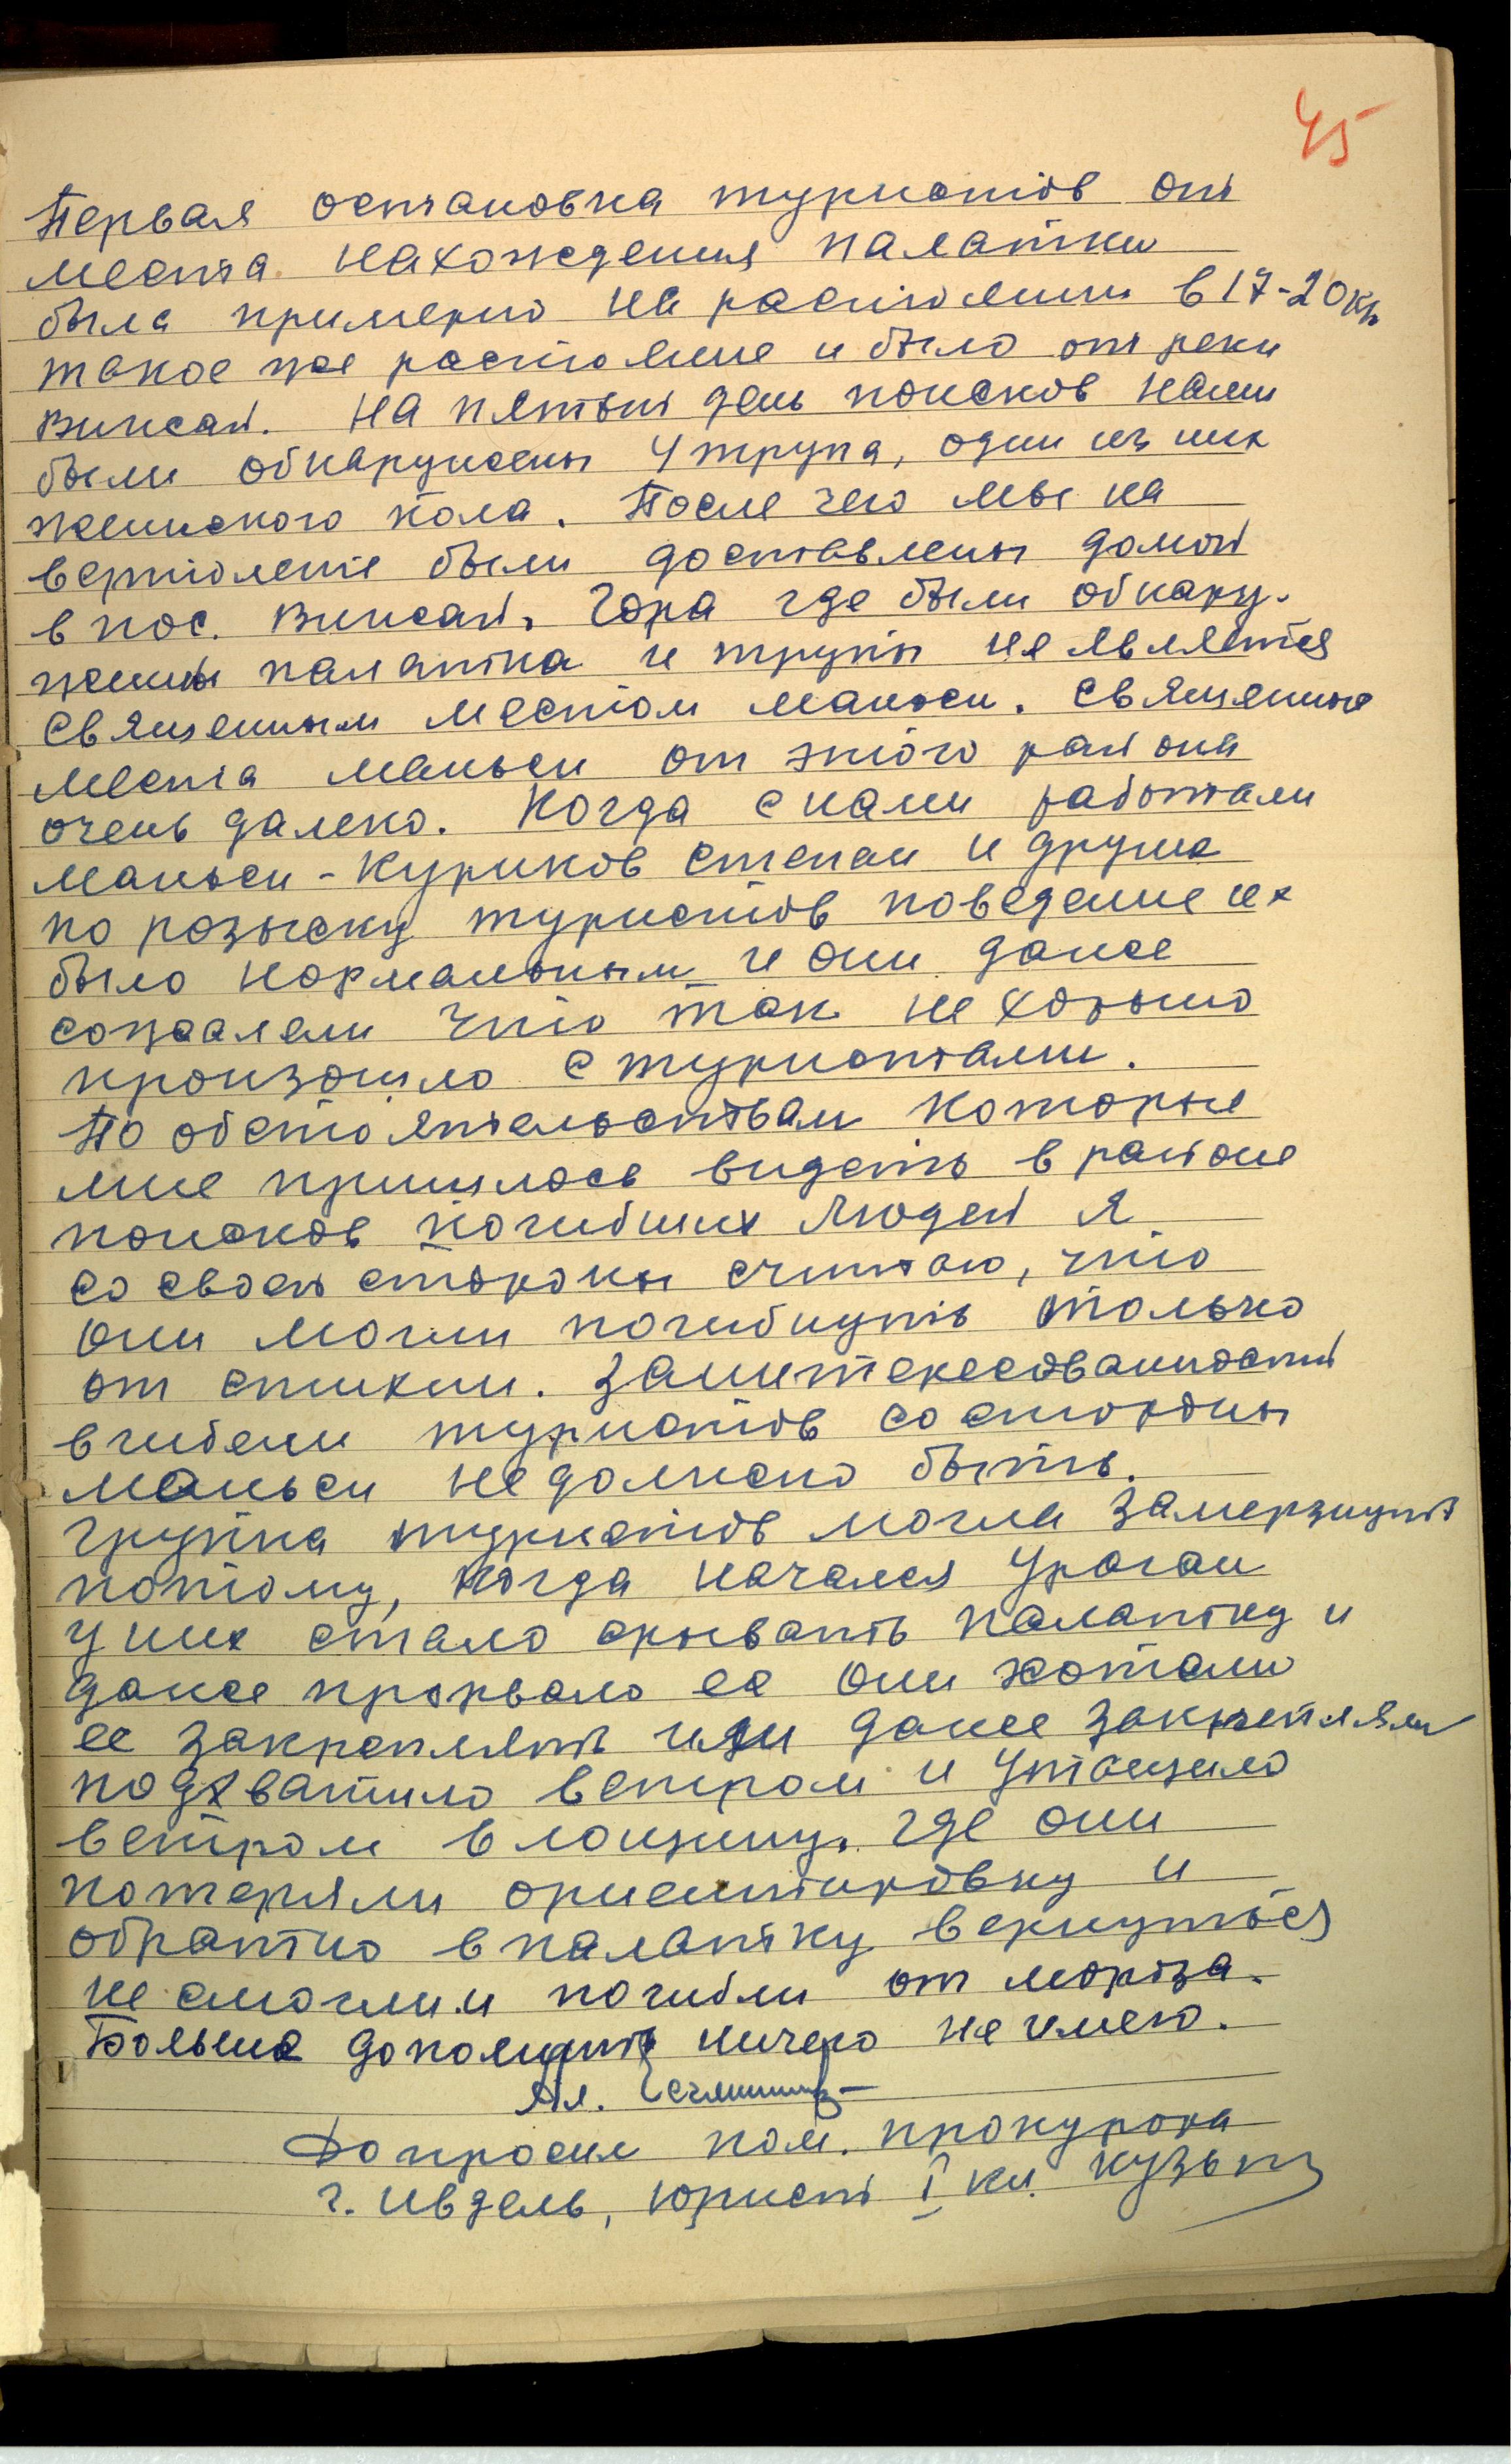 45
Первая остановка туристов от
места нахождения палатки
была примерно на растоянии в 17-20 км
такое же растояние и было от реки
Вижай. На пятый день поисков нами
были обнаружены 4 трупа, один из них
женского пола. После чего мы на
вертолете были доставлены домой
в пос. Вижай. Гора где были обнару-
жены палатка и трупы не является
священным местом маньси. Священные
места маньси от этого района
очень далеко. Когда с нами работали
маньси - Куриков Степан и другие
по розыску туристов поведение их
было нормальным и они даже
сожалели что так не хорошо
произошло с туристами.
По обстоятельствам которые
мне пришлось видеть в районе
поисков погибших людей я
со своей стороны считаю, что
они могли погибнуть только
от стихии. Заинтересованности
в гибели туристов со стороны
маньси не должно быть.
Группа туристов могла замерзнуть
потому, когда начался ураган
у них стало срывать палатку и
даже прорвало ее они хотели
ее закреплять или даже закрепляли
подхватило ветром и утащило
ветром в лощину, где они
потеряли ориентировку и
обратно в палатку вернуться
не смогли и погибли от мороза.
Больше дополнить ничего не имею.
Допросил пом. прокурора
г. Ивдель, юрист I кл.